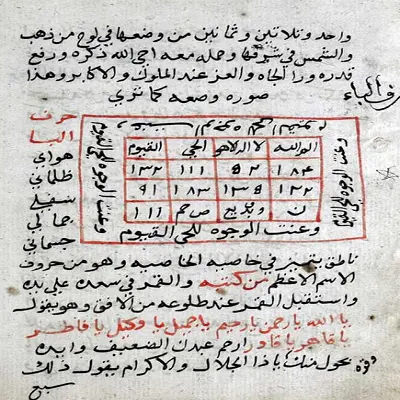 واحد وثلاثين وثمانين من وضعها في لوح من ذهب
والشمس في شرفها وحمله معه اجي الله ذكره ورفع
قدره ورا الجاه والعز عند الملوك والاكابر وهذا
صوره وضعه كما تري
حرف
البا
هواي
ظلماني
سفلي
جمالي
جسماني
وعنت الوجوه للحي القيوم
الم الله لا اله الا هو الحي القيوم
١٨٤ ٥٢ ١١١ ١٣٢
١٢٢ ١٣٥ ١٨٣ ٩١
ن ١١١
وعنت الوجوه للحي القيوم
ناطق يتميز في خاصيه الخاصيه وهو من حروف
الاسم الاعظم من كتبه والقمر في سعده علي يده
واستقبل القمر عند طلوعه من الافق وهو يقول
يا الله يا رحمن يا رحيم يا جميل يا وكيل يا فاطر
يا قاهر يا قادر ارحم عبدك الضعيف وايده
بحول منك يا ذا الجلال والاكرام يقول ذلك
سبع